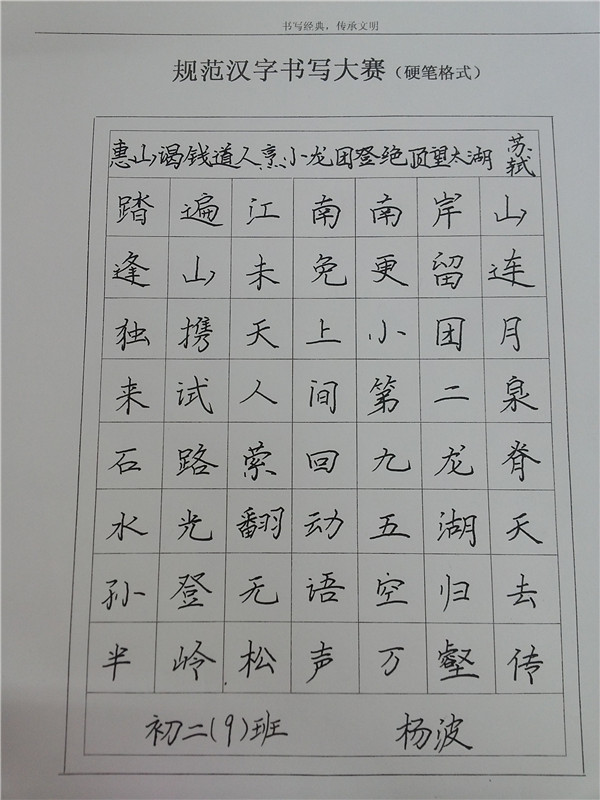 书写经典，传承文明
规范汉字书写大赛（硬笔格式）
惠山谒钱道人烹小龙团登绝顶望太湖 苏轼
踏遍江南南岸山
逢山未免更留连
独携天上小团月
来试人间第二泉
石路萦回九龙脊
水光翻动五湖天
孙登无语空归去
半岭松声万壑传
初二(9)班 杨波